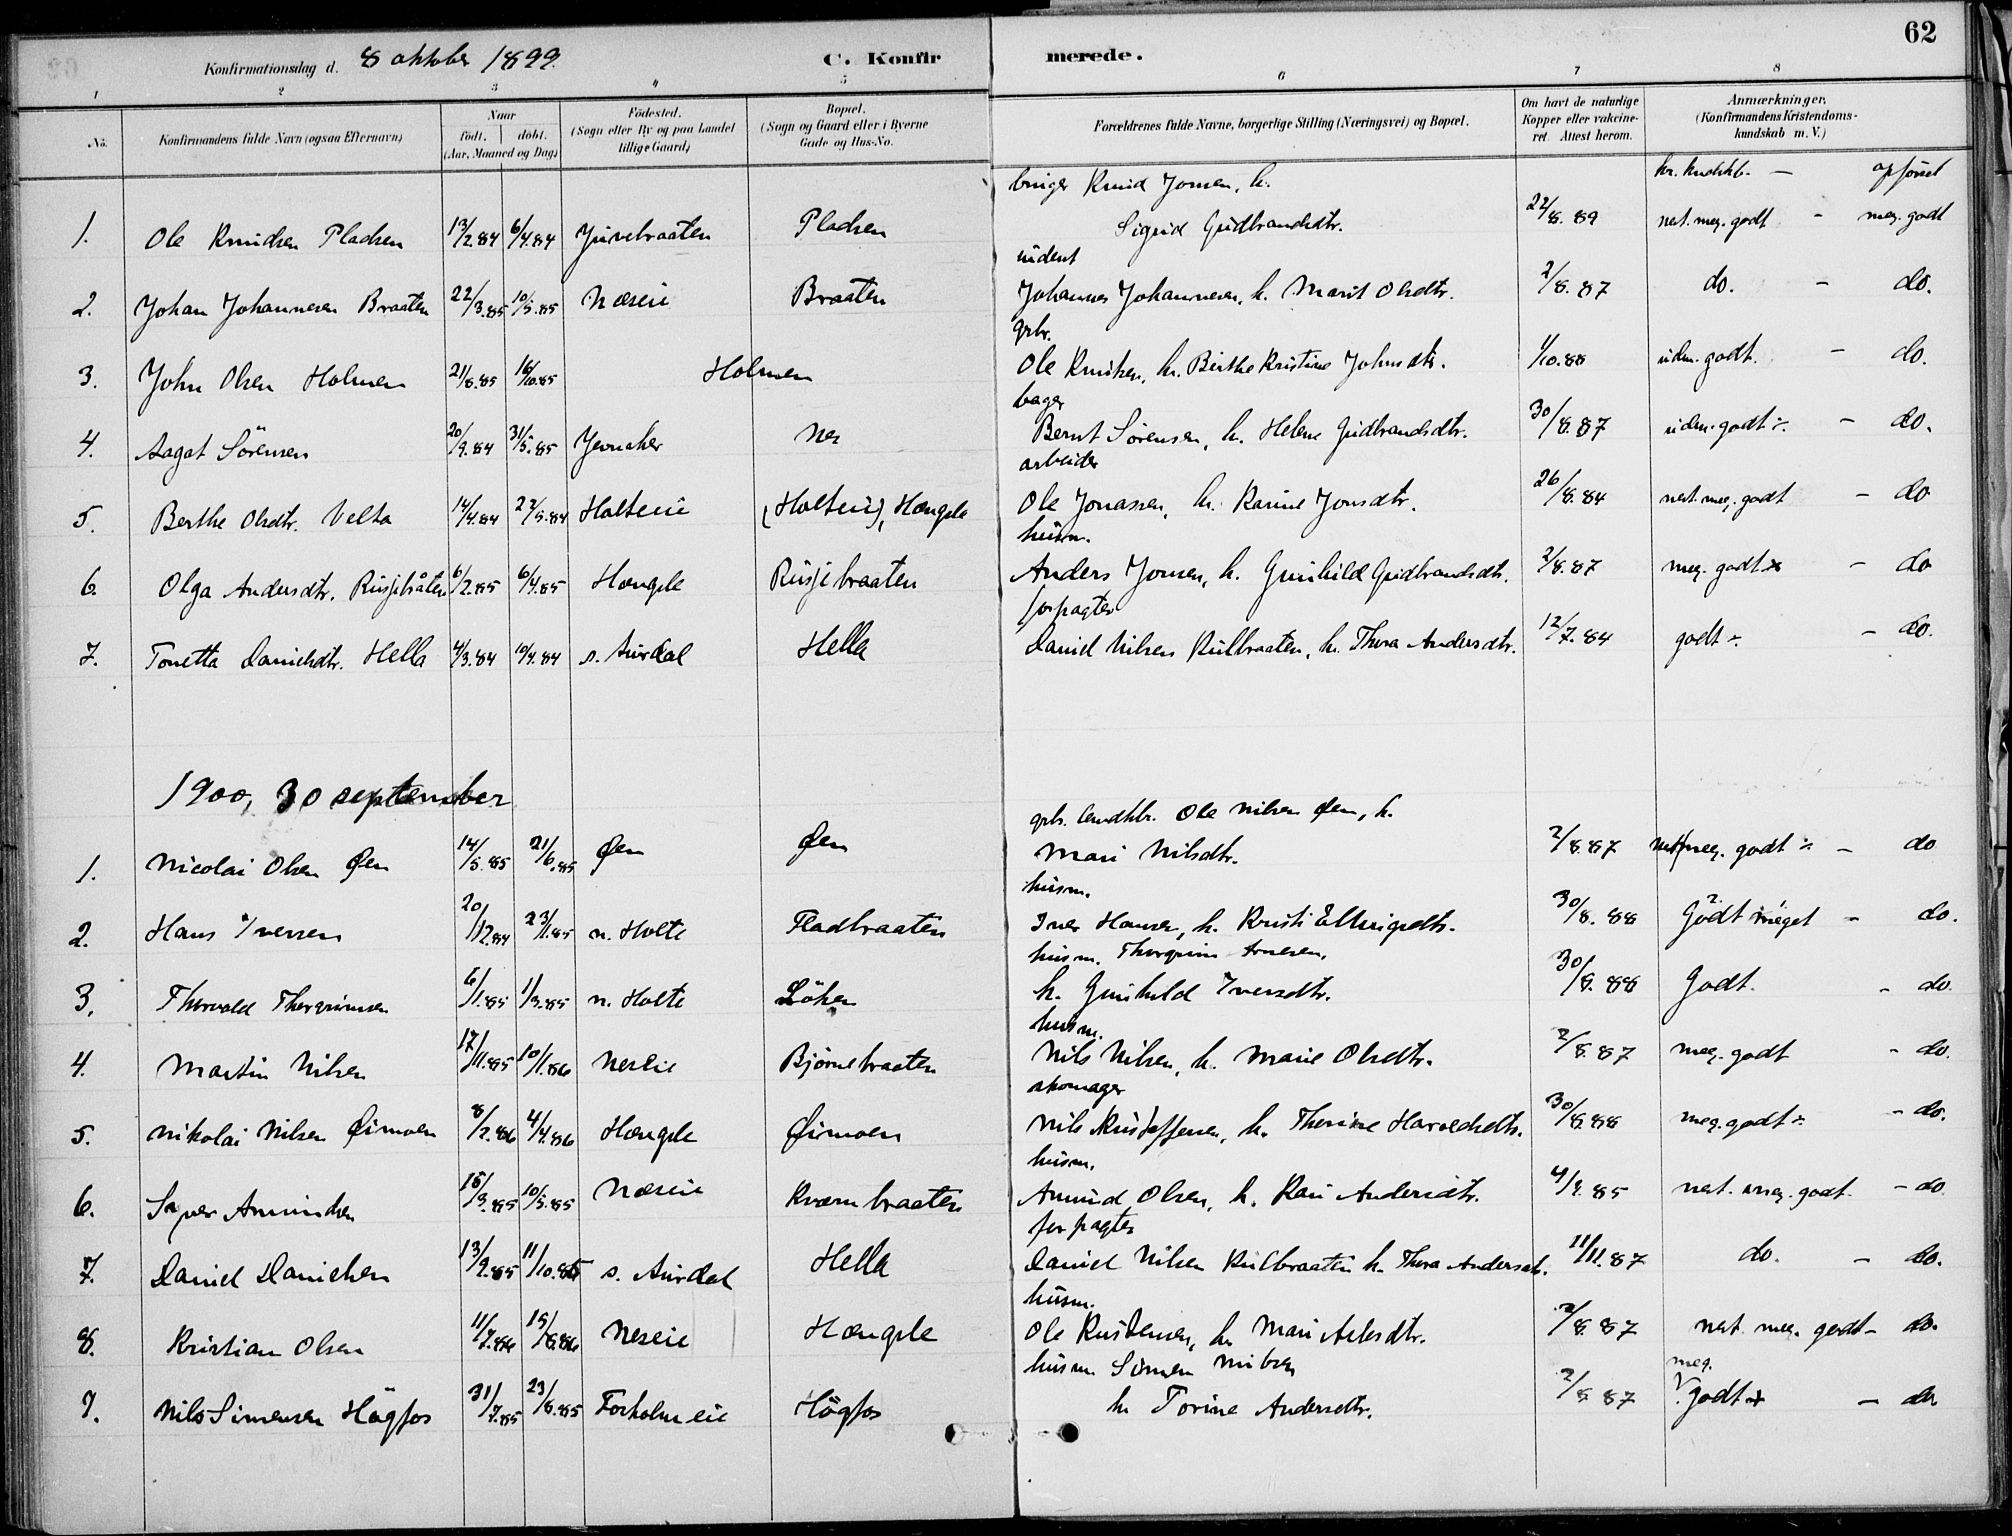 62
Konfirmationsdag d. 8 oktober 1899. C. Konfirmerede.
1 2 3 4 5 6 7 8
No. Konfirmandens fulde Navn (ogsaa Efternavn) Naar født. døbt. (Aar, Maaned og Dag) Fødested. (Sogn eller By og paa Landet tillige Gaard) Bopæl. (Sogn og Gaard eller i Byerne Gade og Hus-No. Forældrenes fulde Navne, borgerlige Stilling (Næringsvei) og Bopæl. Om havt de naturlige Kopper eller vakcineret. Attest herom. Anmærkninger. (Konfirmandens Kristendomskundskab m. V.)
bruger Knud Jonsen, h. kr. kndskb. — opførsel
1. Ole Knudsen Pladsen 13/2.84 6/4.84 Pladsen Sigrid Gudbrandsdtr. 22/8.89 nest. meg. godt - meg. godt
inderst
2. Johan Johannesen Braaten 22/3.85 10/5.85 Næseie Braaten Johannes Johannesen, h. Marit Olsdtr. 2/8.87 do. - do.
grbr.
3. John Olsen Holmen 21/8.85 16/10.85 Holmen Ole Knutsen, h. Birthe Kristine Johnsdtr. 1/10.88 udm. godt. - do.
bager
4. Aagot Sörensen 20/9.84 31/5.85 Jevnaker Nes Bernt Sørensen, h. Helene Gudbrandsdtr. 30/8.87 udm. godt ÷ - do.
arbeider
5. Berthe Olsdtr. Velta 14/4.84 22/5.84 Holteeie (Holteeie), Hængsle Ole Jonassen, h. Karine Jonsdtr. 26/8.84 nest. meg. godt - do
husm.
6. Olga Andersdtr. Rusjebråten 6/2.85 6/4.85 Hængsle Rusjebraaten Anders Jonsen, h. Gunhild Gudbrandsdtr. 2/8.87 meg. godt - do
forpagter
7. Tonetta Danielsdtr. Hella 4/3.84 10/4.84 s. Aurdal Hella Daniel Nilsen Kulbraaten, h. Thora Andersdtr. 12/7.84 godt ÷ - do.
1900, 30 september
grb. Ole Nilsen Øen, h.
1. Nicolai Olsen Øen 14/5.85 21/6.85 Øen Øen Mari Nilsdtr. 2/8.87 meg. godt ÷ - do
husm.
2. Hans Iversen 20/12.84 23/1.85 n. Holte Fladbraaten Iver Hansen, h. Kristi Ellingsdtr. 30/8.88 Godt meget - do.
husm. Thorgrim Arnesen,
3. Thorvald Thorgrimsen 6/1.85 1/3.85 n. Holte Löken h. Gunhild Iversdtr. 30/8.88 Godt. - do.
husm.
4. Martin Nilsen 17/11.85 10/1.86 Neseie Bjørnebraaten Nils Nilsen, h. Marie Olsdtr. 2/8.87 meg. godt - do.
skomager
5. Nikolai Nilsen Øimoen 8/2.86 4/4.86 Hængsle Øimoen Nils Kristoffersen, h. Therine Haraldsdtr. 30/8.88 meg. godt ÷ - do.
husm.
6. Syver Amundsen 15/3.85 10/5.85 Næseie Kværnbraaten Amund Olsen, h. Kari Andersdtr. 4/9.85 nest. meg. godt. - do
forpagter
7. Daniel Danielsen 13/9.85 11/10.85 s. Aurdal Hella Daniel Nilsen Kulbraaten h. Thora Andersdtr. 11/11.87 do. - do.
husm.
8. Kristian Olsen 11/7.86 15/8.86 Neseie Hængsle Ole Kristensen, h. Mari Aslesdtr. 2/8.87 nest. meg. godt - do.
husm. Simen Nilsen meg.
9. Nils Simensen Högfos 31/7.85 23/8.85 Högfos h. Torine Andersdtr. 2/8.87 Godt - do